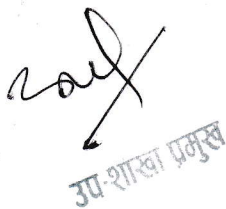 उप-शाखा प्रमुख